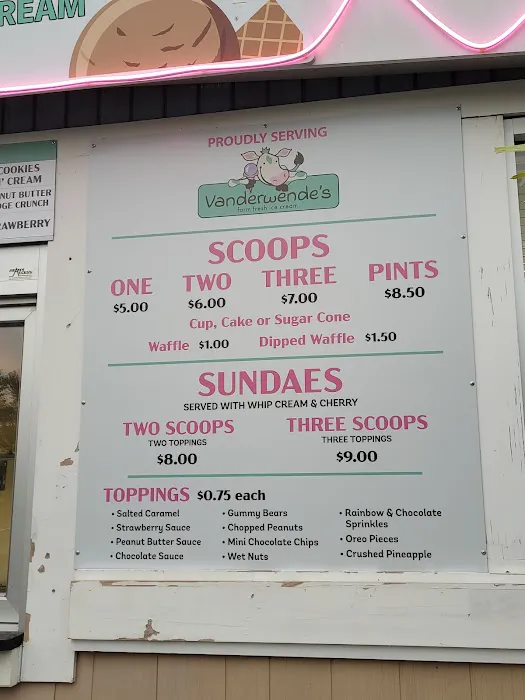 REAM
COOKIES
N' CREAM
NUT BUTTER
DGE CRUNCH
RAWBERRY
PROUDLY SERVING
Vanderwende's
farm fresh ice cream
SCOOPS
ONE TWO THREE PINTS
$5.00 $6.00 $7.00 $8.50
Cup, Cake or Sugar Cone
Waffle $1.00 Dipped Waffle $1.50
SUNDAES
SERVED WITH WHIP CREAM & CHERRY
TWO SCOOPS THREE SCOOPS
TWO TOPPINGS THREE TOPPINGS
$8.00 $9.00
TOPPINGS $0.75 each
• Salted Caramel • Gummy Bears • Rainbow & Chocolate
• Strawberry Sauce • Chopped Peanuts Sprinkles
• Peanut Butter Sauce • Mini Chocolate Chips • Oreo Pieces
• Chocolate Sauce • Wet Nuts • Crushed Pineapple